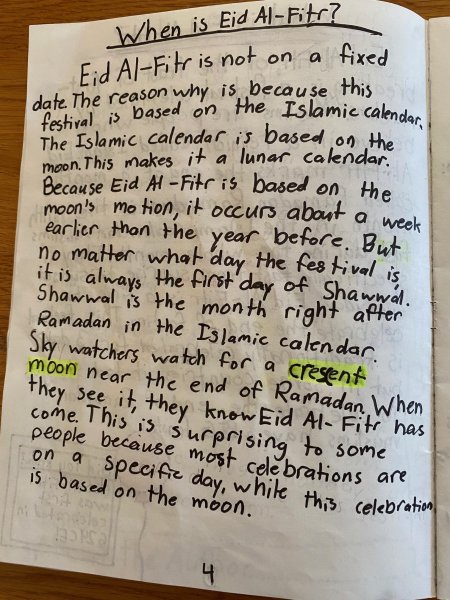 When is Eid Al-Fitr?
Eid Al-Fitr is not on a fixed
date. The reason why is because this
festival is based on the Islamic calendar.
The Islamic calendar is based on the
moon. This makes it a lunar calendar.
Because Eid Al-Fitr is based on the
moon's motion, it occurs about a week
earlier than the year before. But
no matter what day the festival is,
it is always the first day of Shawwal.
Shawwal is the month right after
Ramadan in the Islamic calendar.
Sky watchers watch for a cresent
moon near the end of Ramadan. When
they see it, they know Eid Al-Fitr has
come. This is surprising to some
people because most celebrations are
on a specific day, while this celebration
is based on the moon.
4